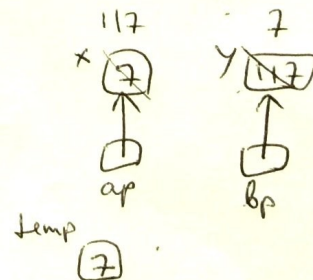 117 7
x 7 y 117
ap bp
temp
7